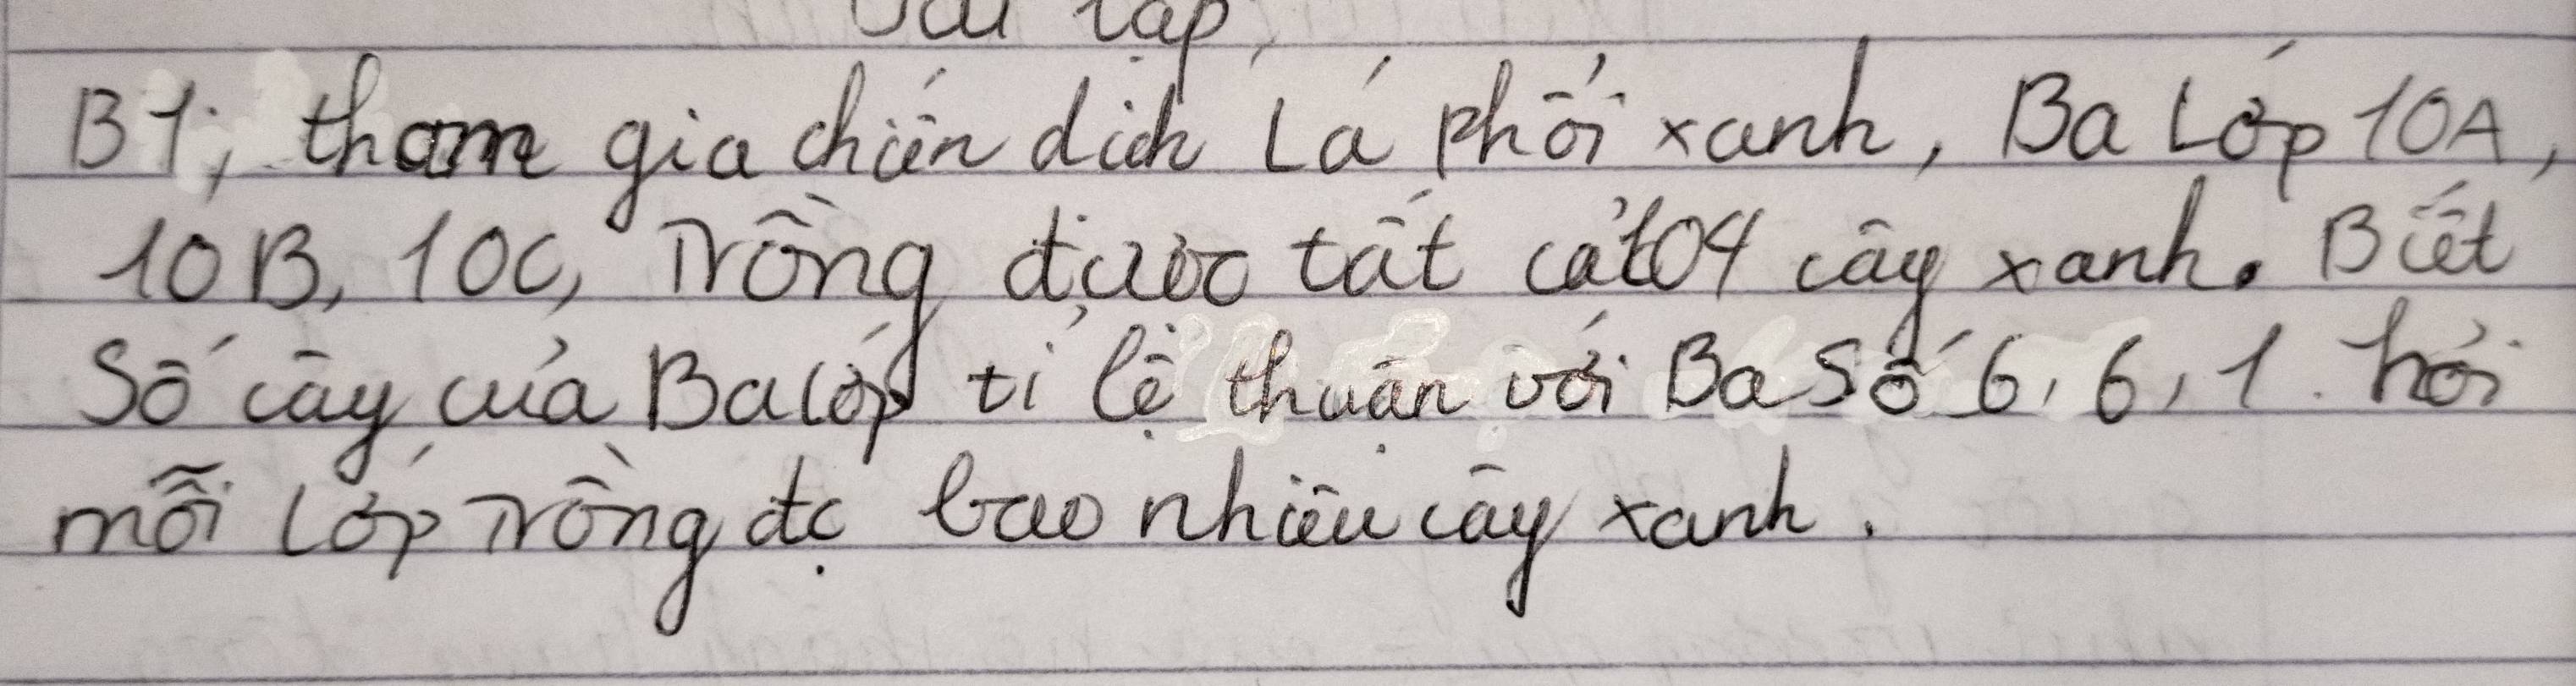 Bài tập
B1; tham gia chiến dịch Lá phổi xanh, Ba Lớp 10A,
10B, 10C, Trồng được tất cả 104 cây xanh. Biết
Số cây của Ba lớp tỉ lệ thuận với Ba Số 6, 6, 1. hỏi
mỗi Lớp Trồng đc bao nhiêu cây xanh.